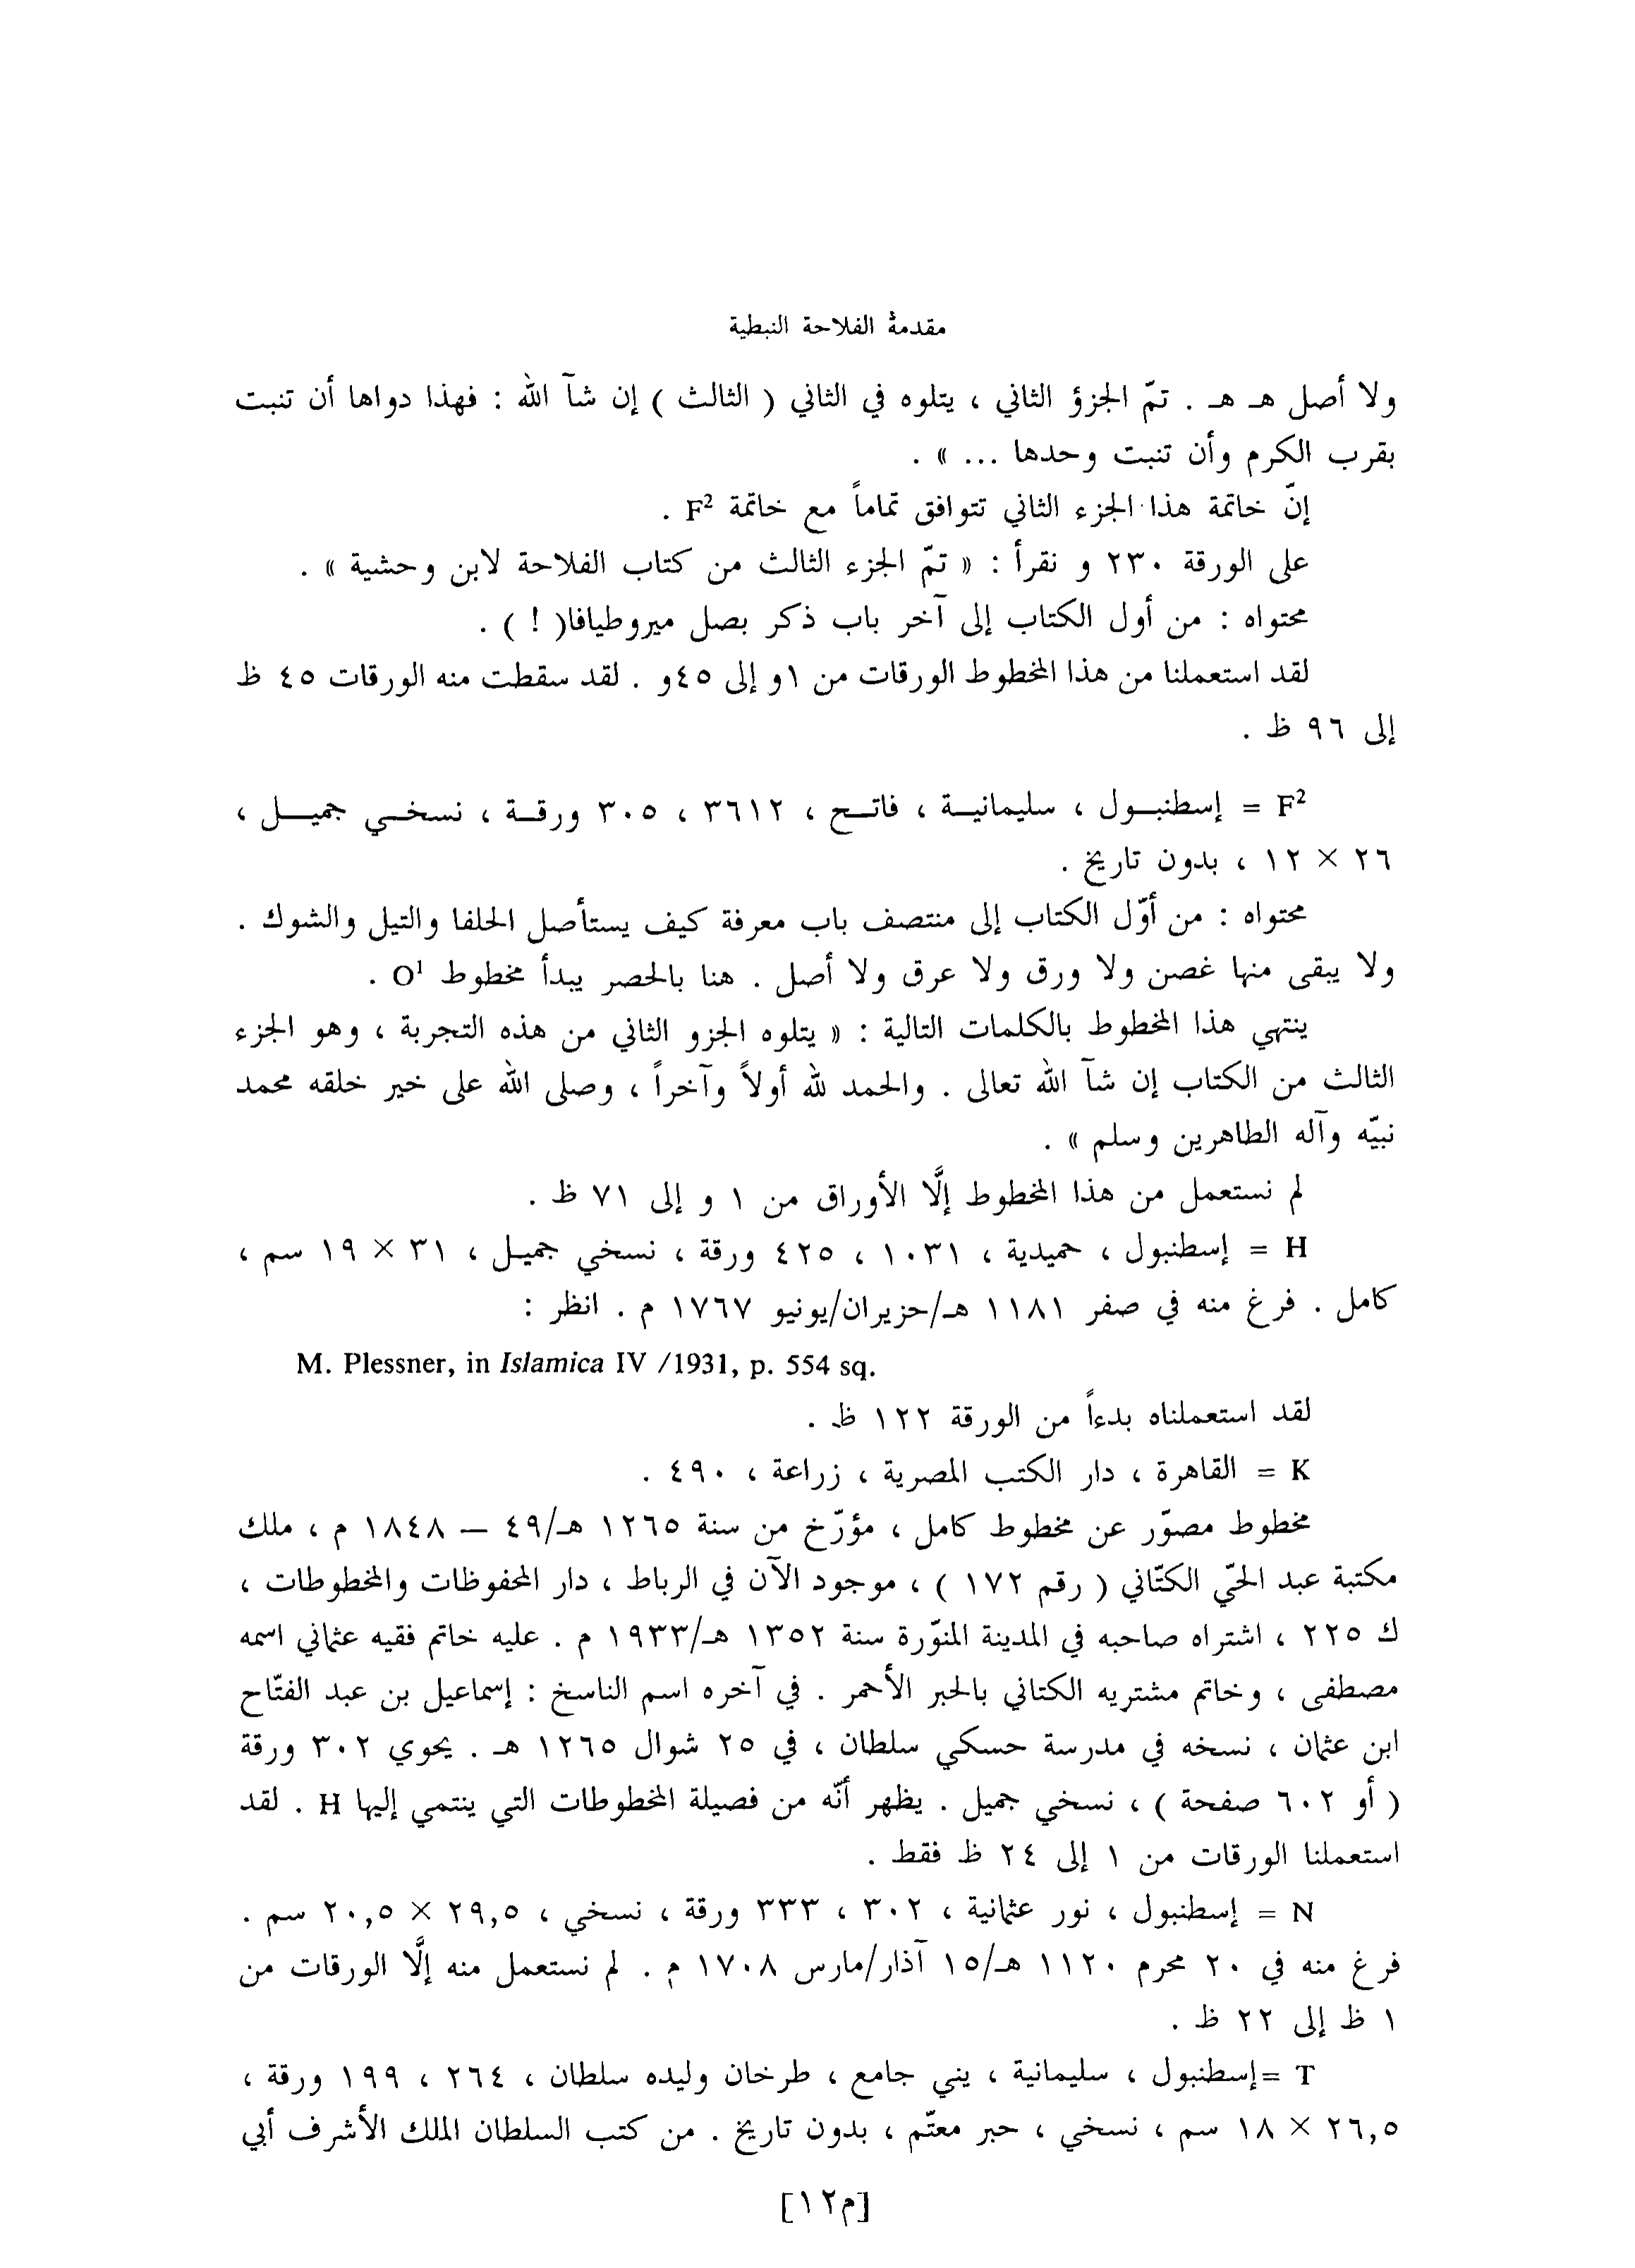 مقدمة الفلاحة النبطية
ولا أصل هـ هـ . تمّ الجزؤ الثاني ، يتلوه في الثاني ( الثالث ) إن شآ الله : فهذا دواها أن تنبت
بقرب الكرم وأن تنبت وحدها ... » .
إنّ خاتمة هذا الجزء الثاني تتوافق تماماً مع خاتمة F² .
على الورقة ٢٣٠ و نقرأ : « تمّ الجزء الثالث من كتاب الفلاحة لابن وحشية » .
محتواه : من أول الكتاب إلى آخر باب ذكر بصل ميروطيافا( ! ) .
لقد استعملنا من هذا المخطوط الورقات من ١و إلى ٤٥و . لقد سقطت منه الورقات ٤٥ ظ
إلى ٩٦ ظ .
F² = إسطنبـول ، سليمانيـة ، فاتـح ، ٣٦١٢ ، ٣٠٥ ورقـة ، نسخـي جميـل ،
٢٦ × ١٢ ، بدون تاريخ .
محتواه : من أوّل الكتاب إلى منتصف باب معرفة كيف يستأصل الحلفا والتيل والشوك .
ولا يبقى منها غصن ولا ورق ولا عرق ولا أصل . هنا بالحصر يبدأ مخطوط O¹ .
ينتهي هذا المخطوط بالكلمات التالية : « يتلوه الجزو الثاني من هذه التجربة ، وهو الجزء
الثالث من الكتاب إن شآ الله تعالى . والحمد لله أولاً وآخراً ، وصلى الله على خير خلقه محمد
نبيّه وآله الطاهرين وسلم » .
لم نستعمل من هذا المخطوط إلَّا الأوراق من ١ و إلى ٧١ ظ .
H = إسطنبول ، حميدية ، ١٠٣١ ، ٤٢٥ ورقة ، نسخي جميـل ، ٣١ × ١٩ سم ،
كامل . فرغ منه في صفر ١١٨١ هـ/حزيران/يونيو ١٧٦٧ م . انظر :
M. Plessner, in Islamica IV /1931, p. 554 sq.
لقد استعملناه بدءاً من الورقة ١٢٢ ظ .
K = القاهرة ، دار الكتب المصرية ، زراعة ، ٤٩٠ .
مخطوط مصوّر عن مخطوط كامل ، مؤرّخ من سنة ١٢٦٥ هـ/٤٩ – ١٨٤٨ م ، ملك
مكتبة عبد الحيّ الكتّاني ( رقم ١٧٢ ) ، موجود الآن في الرباط ، دار المحفوظات والمخطوطات ،
ك ٢٢٥ ، اشتراه صاحبه في المدينة المنوّرة سنة ١٣٥٢ هـ/١٩٣٣ م . عليه خاتم فقيه عثماني اسمه
مصطفى ، وخاتم مشتريه الكتاني بالحبر الأحمر . في آخره اسم الناسخ : إسماعيل بن عبد الفتّاح
ابن عثمان ، نسخه في مدرسة حسكي سلطان ، في ٢٥ شوال ١٢٦٥ هـ . يحوي ٣٠٢ ورقة
( أو ٦٠٢ صفحة ) ، نسخي جميل . يظهر أنّه من فصيلة المخطوطات التي ينتمي إليها H . لقد
استعملنا الورقات من ١ إلى ٢٤ ظ فقط .
N = إسطنبول ، نور عثمانية ، ٣٠٢ ، ٣٣٣ ورقة ، نسخي ، ٢٩,٥ × ٢٠,٥ سم .
فرغ منه في ٢٠ محرم ١١٢٠ هـ/١٥ آذار/مارس ١٧٠٨ م . لم نستعمل منه إلَّا الورقات من
١ ظ إلى ٢٢ ظ .
T =إسطنبول ، سليمانية ، يني جامع ، طرخان وليده سلطان ، ٢٦٤ ، ١٩٩ ورقة ،
٢٦,٥ × ١٨ سم ، نسخي ، حبر معتّم ، بدون تاريخ . من كتب السلطان الملك الأشرف أبي
[م١٢]